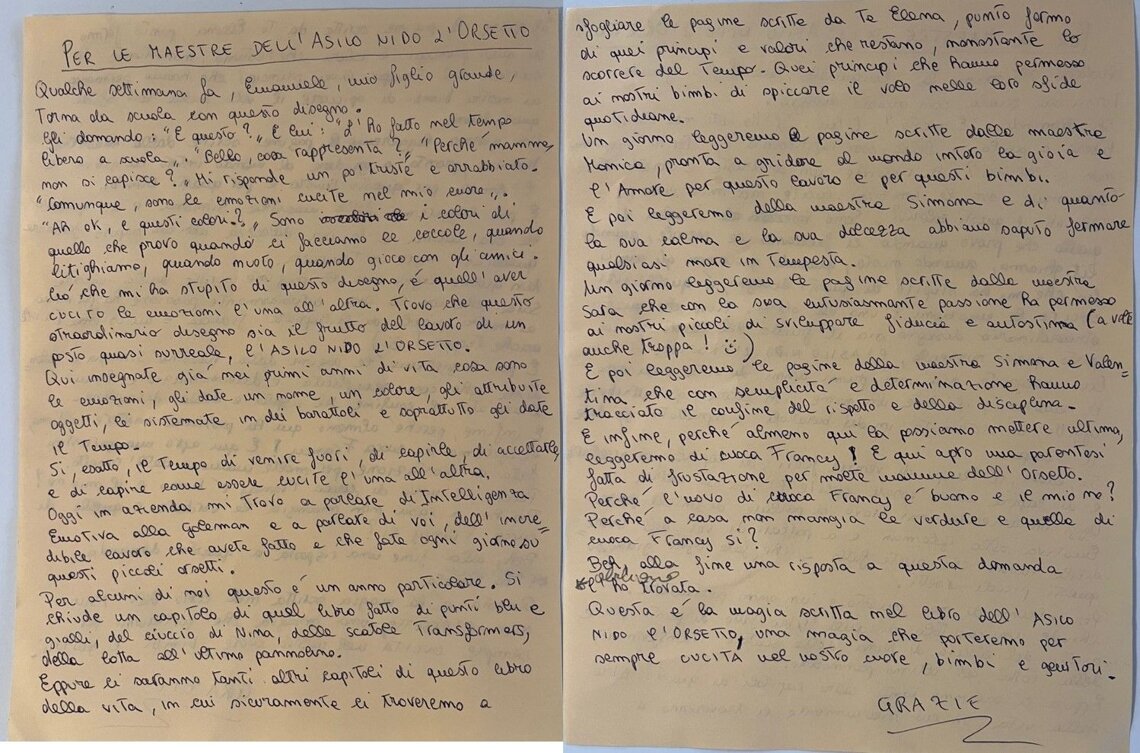 PER LE MAESTRE DELL'ASILO NIDO L'ORSETTO
Qualche settimana fa, Emanuele, mio figlio grande,
torna da scuola con questo disegno.
Gli domando: "E questo?" E lui: "L'ho fatto nel tempo
libero a scuola". "Bello, cosa rappresenta?" "Perché mamma,
non si capisce?" Mi risponde un po' triste e arrabbiato.
"Comunque, sono le emozioni cucite nel mio cuore".
"Ah ok, e questi colori?" Sono i colori di
quello che provo quando ci facciamo le coccole, quando
litighiamo, quando nuoto, quando gioco con gli amici.
Ció che mi ha stupito di questo disegno, é quell'aver
cucito le emozioni l'una all'altra. Trovo che questo
straordinario disegno sia il frutto del lavoro di un
posto quasi surreale, l'ASILO NIDO L'ORSETTO.
Qui insegnate giá nei primi anni di vita cosa sono
le emozioni, gli date un nome, un colore, gli attribuite
oggetti, le sistemate in dei barattoli e soprattutto gli date
il Tempo.
Sí, esatto, il Tempo di venire fuori, di capirle, di accettarle,
e di capire come essere cucite l'una all'altra.
Oggi in azienda mi trovo a parlare di Intelligenza
Emotiva alla Goleman e a parlare di voi, dell'incre=
dibile lavoro che avete fatto e che fate ogni giorno su
questi piccoli orsetti.
Per alcuni di noi questo é un anno particolare. Si
chiude un capitolo di quel libro fatto di punti blu e
gialli, del ciuccio di Nina, delle scatole Transformers,
della lotta all'ultimo pannolino.
Eppure ci saranno tanti altri capitoli di questo libro
della vita, in cui sicuramente ci troveremo a
sfogliare le pagine scritte da te Elena, punto fermo
di quei principi e valori che restano, nonostante lo
scorrere del tempo. Quei principi che hanno permesso
ai nostri bimbi di spiccare il volo nelle loro sfide
quotidiane.
Un giorno leggeremo le pagine scritte dalla maestra
Monica, pronta a gridare al mondo intero la gioia e
l'Amore per questo lavoro e per questi bimbi.
E poi leggeremo della maestra Simona e di quanto
la sua calma e la sua dolcezza abbiano saputo fermare
qualsiasi mare in tempesta.
Un giorno leggeremo le pagine scritte dalla maestra
Sara che con la sua entusiasmante passione ha permesso
ai nostri piccoli di sviluppare fiducia e autostima (a volte
anche troppa! :))
E poi leggeremo le pagine della maestra Simona e Valen=
tina che con semplicitá e determinazione hanno
tracciato il confine del rispetto e della disciplina.
E infine, perché almeno qui la possiamo mettere ultima,
leggeremo di cuoca Francy! E qui apro una parentesi
fatta di frustazione per molte mamme dell'Orsetto.
Perché l'uovo di cuoca Francy é buono e il mio no?
Perché a casa non mangia le verdure e quelle di
cuoca Francy sí?
Beh, alla fine una risposta a questa domanda
l'ho trovata.
Questa é la magia scritta nel libro dell'ASILO
NIDO L'ORSETTO, una magia che porteremo per
sempre CUCITA nel nostro cuore, bimbi e genitori.
GRAZIE